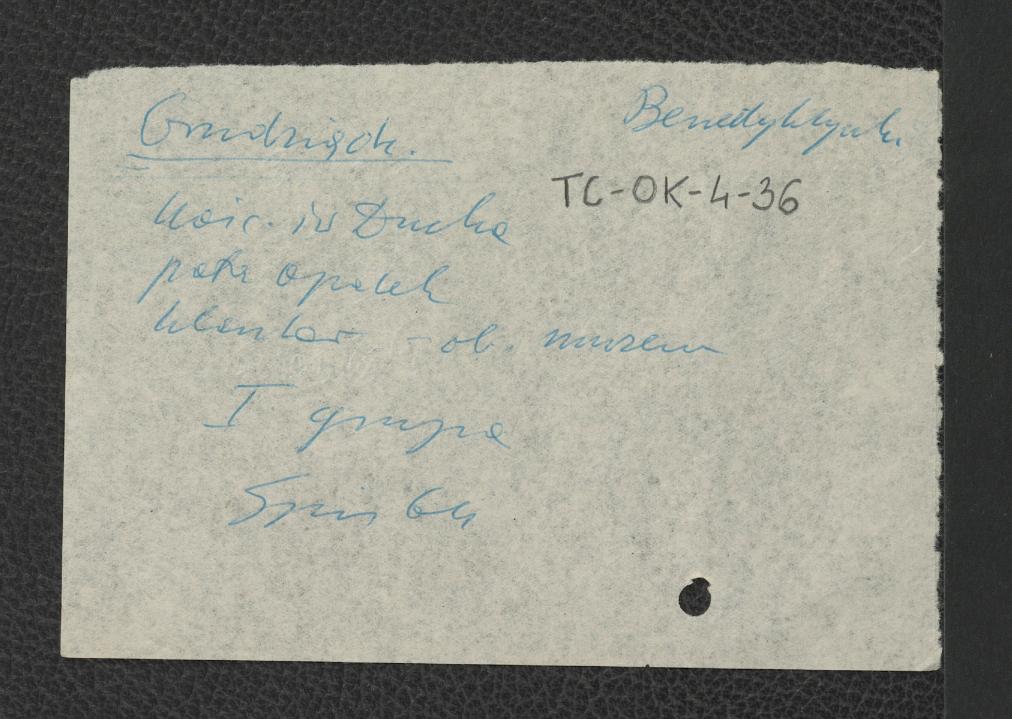 Grudziądz.
Benedyktynki
TC-OK-4-36
kośc. św Ducha
pałac opatek
klasztor - ob. muzeum
I grupa
Spis 64